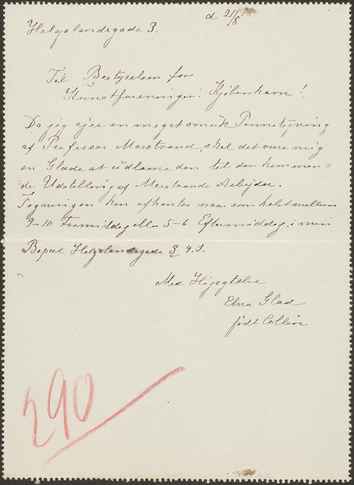 Helgolandsgade 3.
d. 21/8
Til Bestyrelsen for
Kunstforeningen i Kjøbenhavn!
Da jeg ejer en meget smuk Pennetegning
af Professor Marstrand, skal det være mig
en Glæde at udlaane den til den kommen-
de Udstilling af Marstrands Arbejder.
Tegningen kan afhentes naar som helst mellem
9-10 Formiddag eller 5-6 Eftermiddag, i min
Bopæl Helgolandsgade 3 4 S.
Med Højagtelse
Glad
født Collin
290